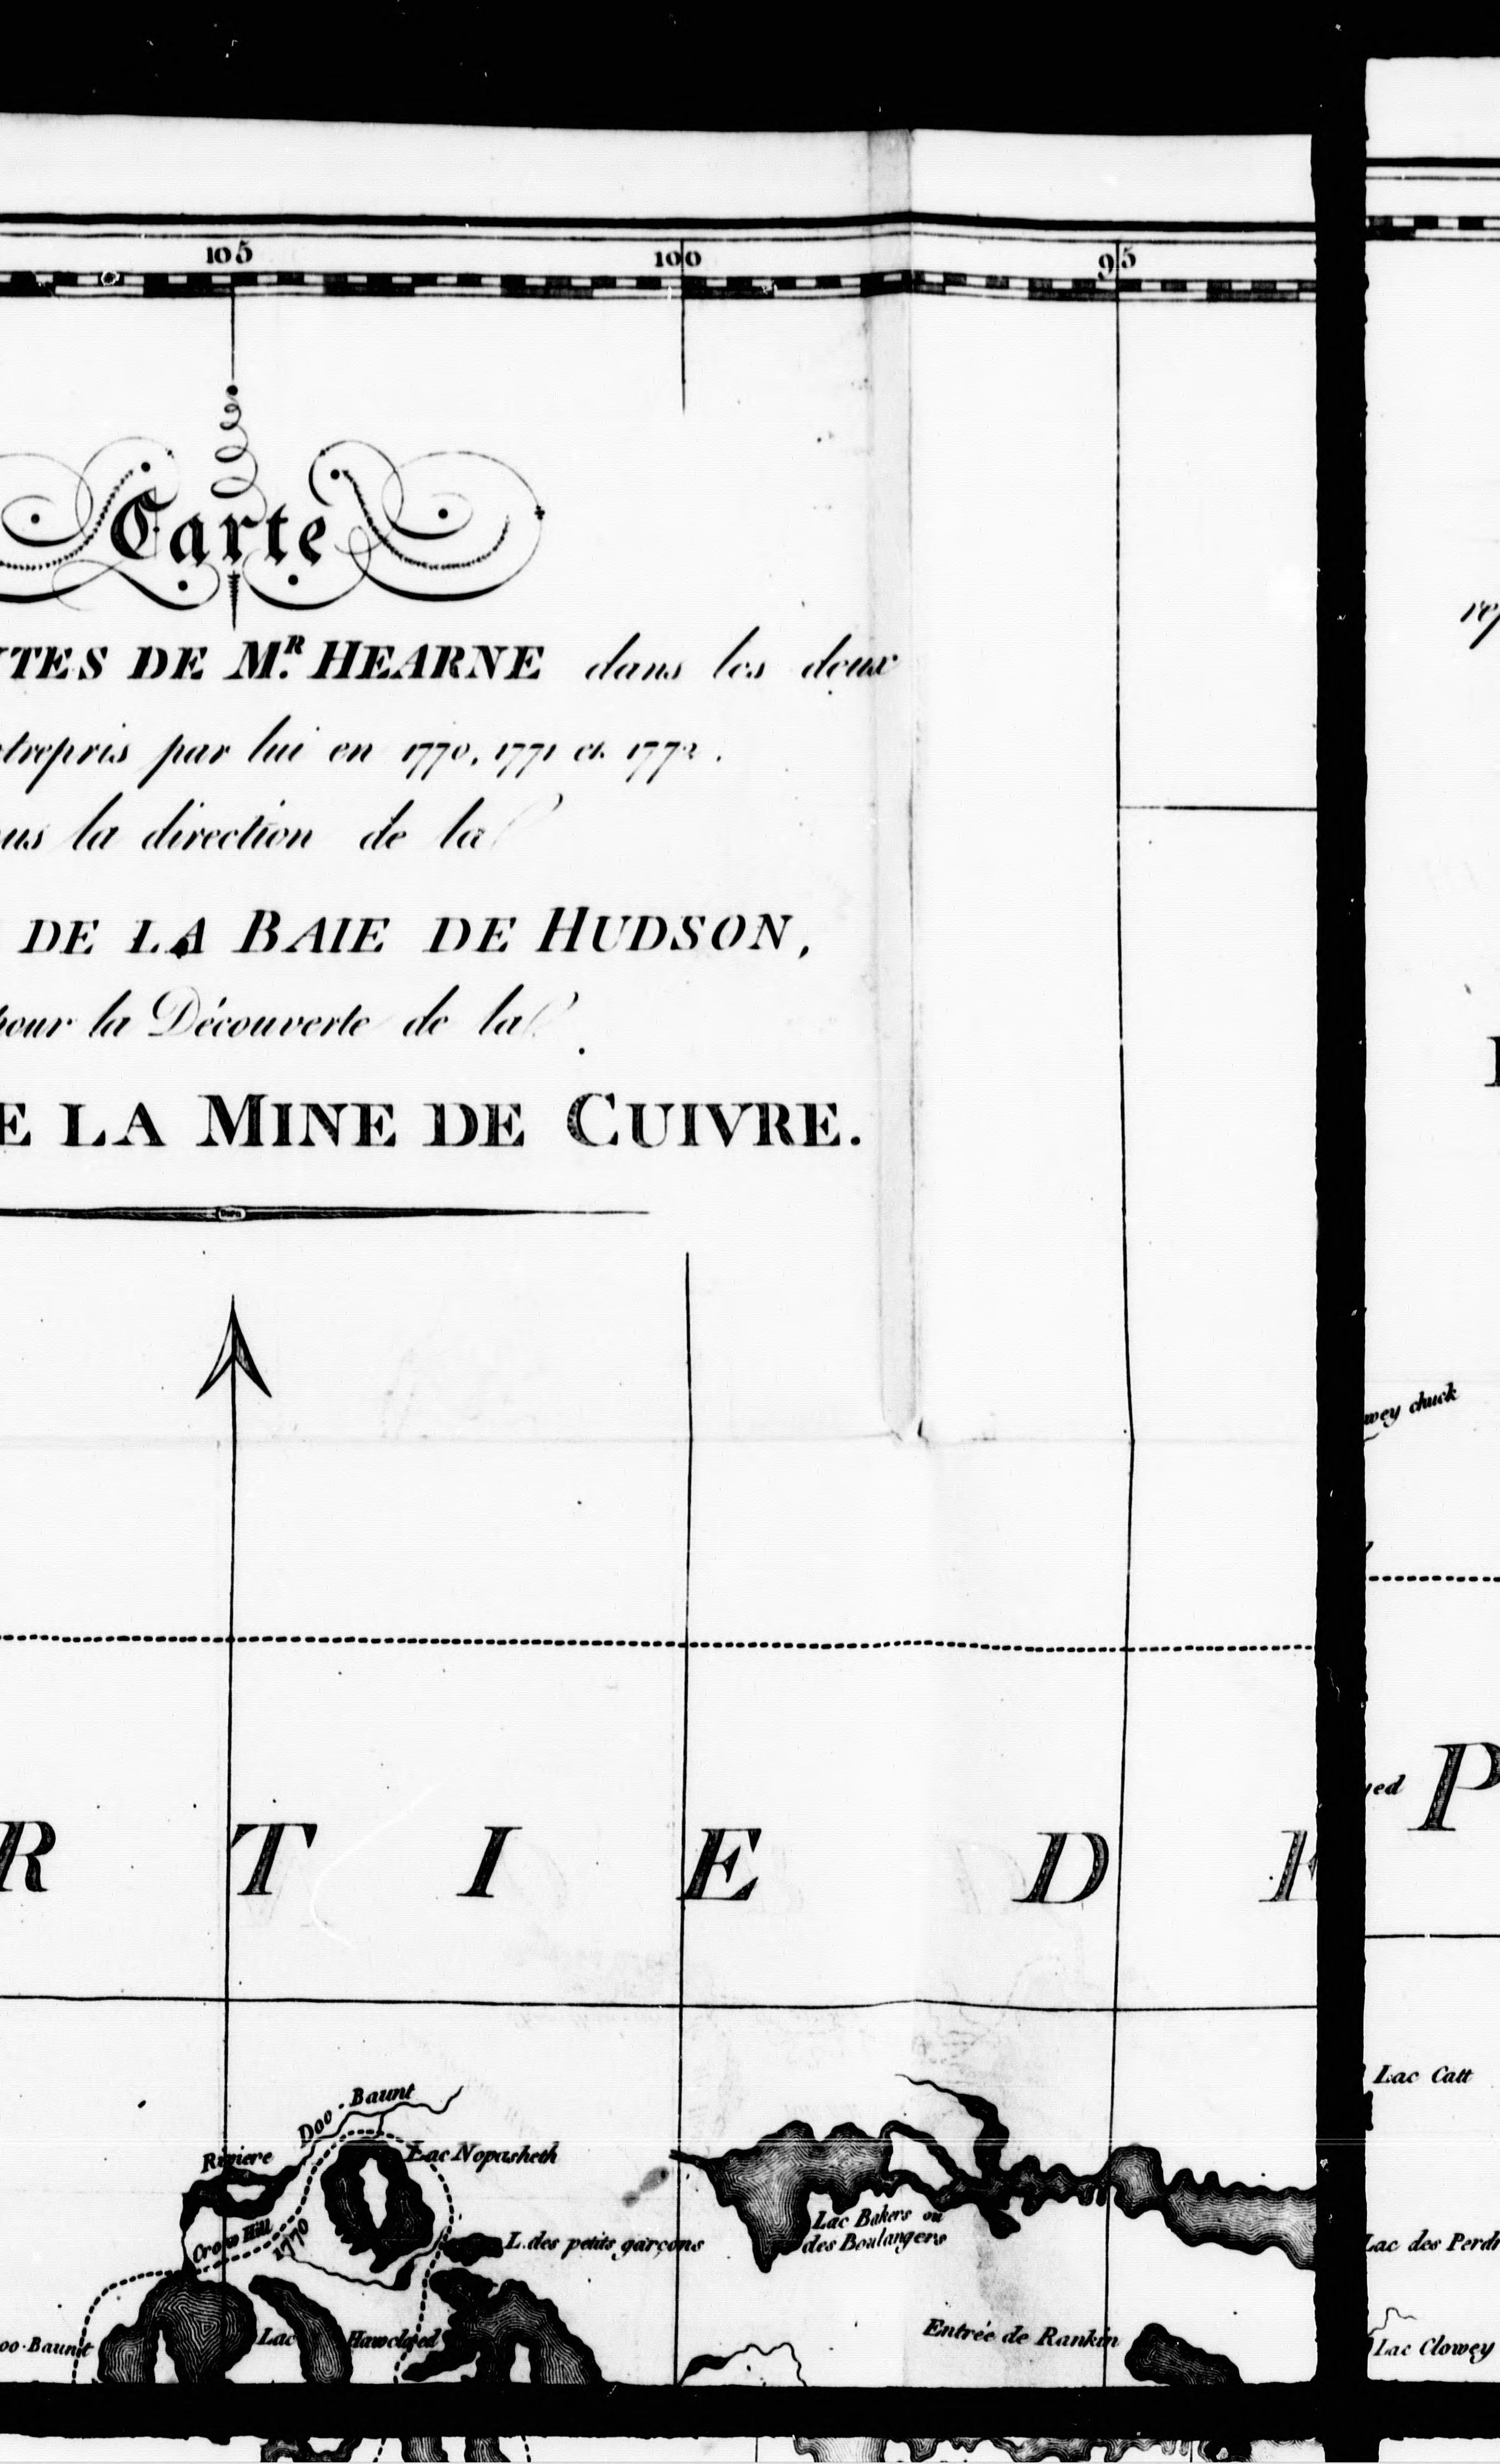 105 100 95
Carte
TES DE M.R HEARNE dans les deux
ntrepris par lui en 1770, 1771 et 1772.
us la direction de la
DE LA BAIE DE HUDSON,
pour la Découverte de la
E LA MINE DE CUIVRE.
wey chuck
P
R T I E D E
Lac Catt
Doo-Baunt
Riviere
Lac Nopasheth
Crow Hill
1770
L. des petits garçons
Lac Bakers ou
des Boulangers
Lac des Perdr
Entrée de Rankin
oo-Baunt
Lac Hawclyed
Lac Clowey